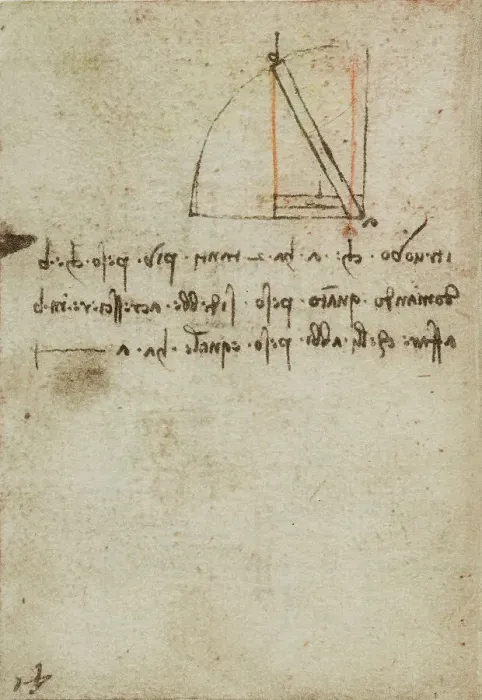 b
a
in modo . che . a . ha . 2 . tanti . piu . peso . che . b
domando . quāto . peso . sarebbe . acresscere . in . b
affare . chelli . abbi . peso . equale . ha . a